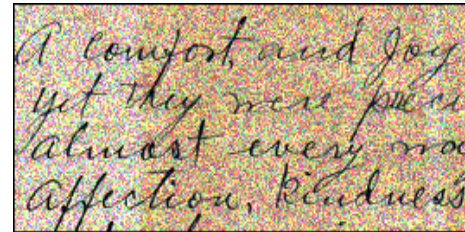 A comfort and Joy
yet they were
almost every
affection, kindness